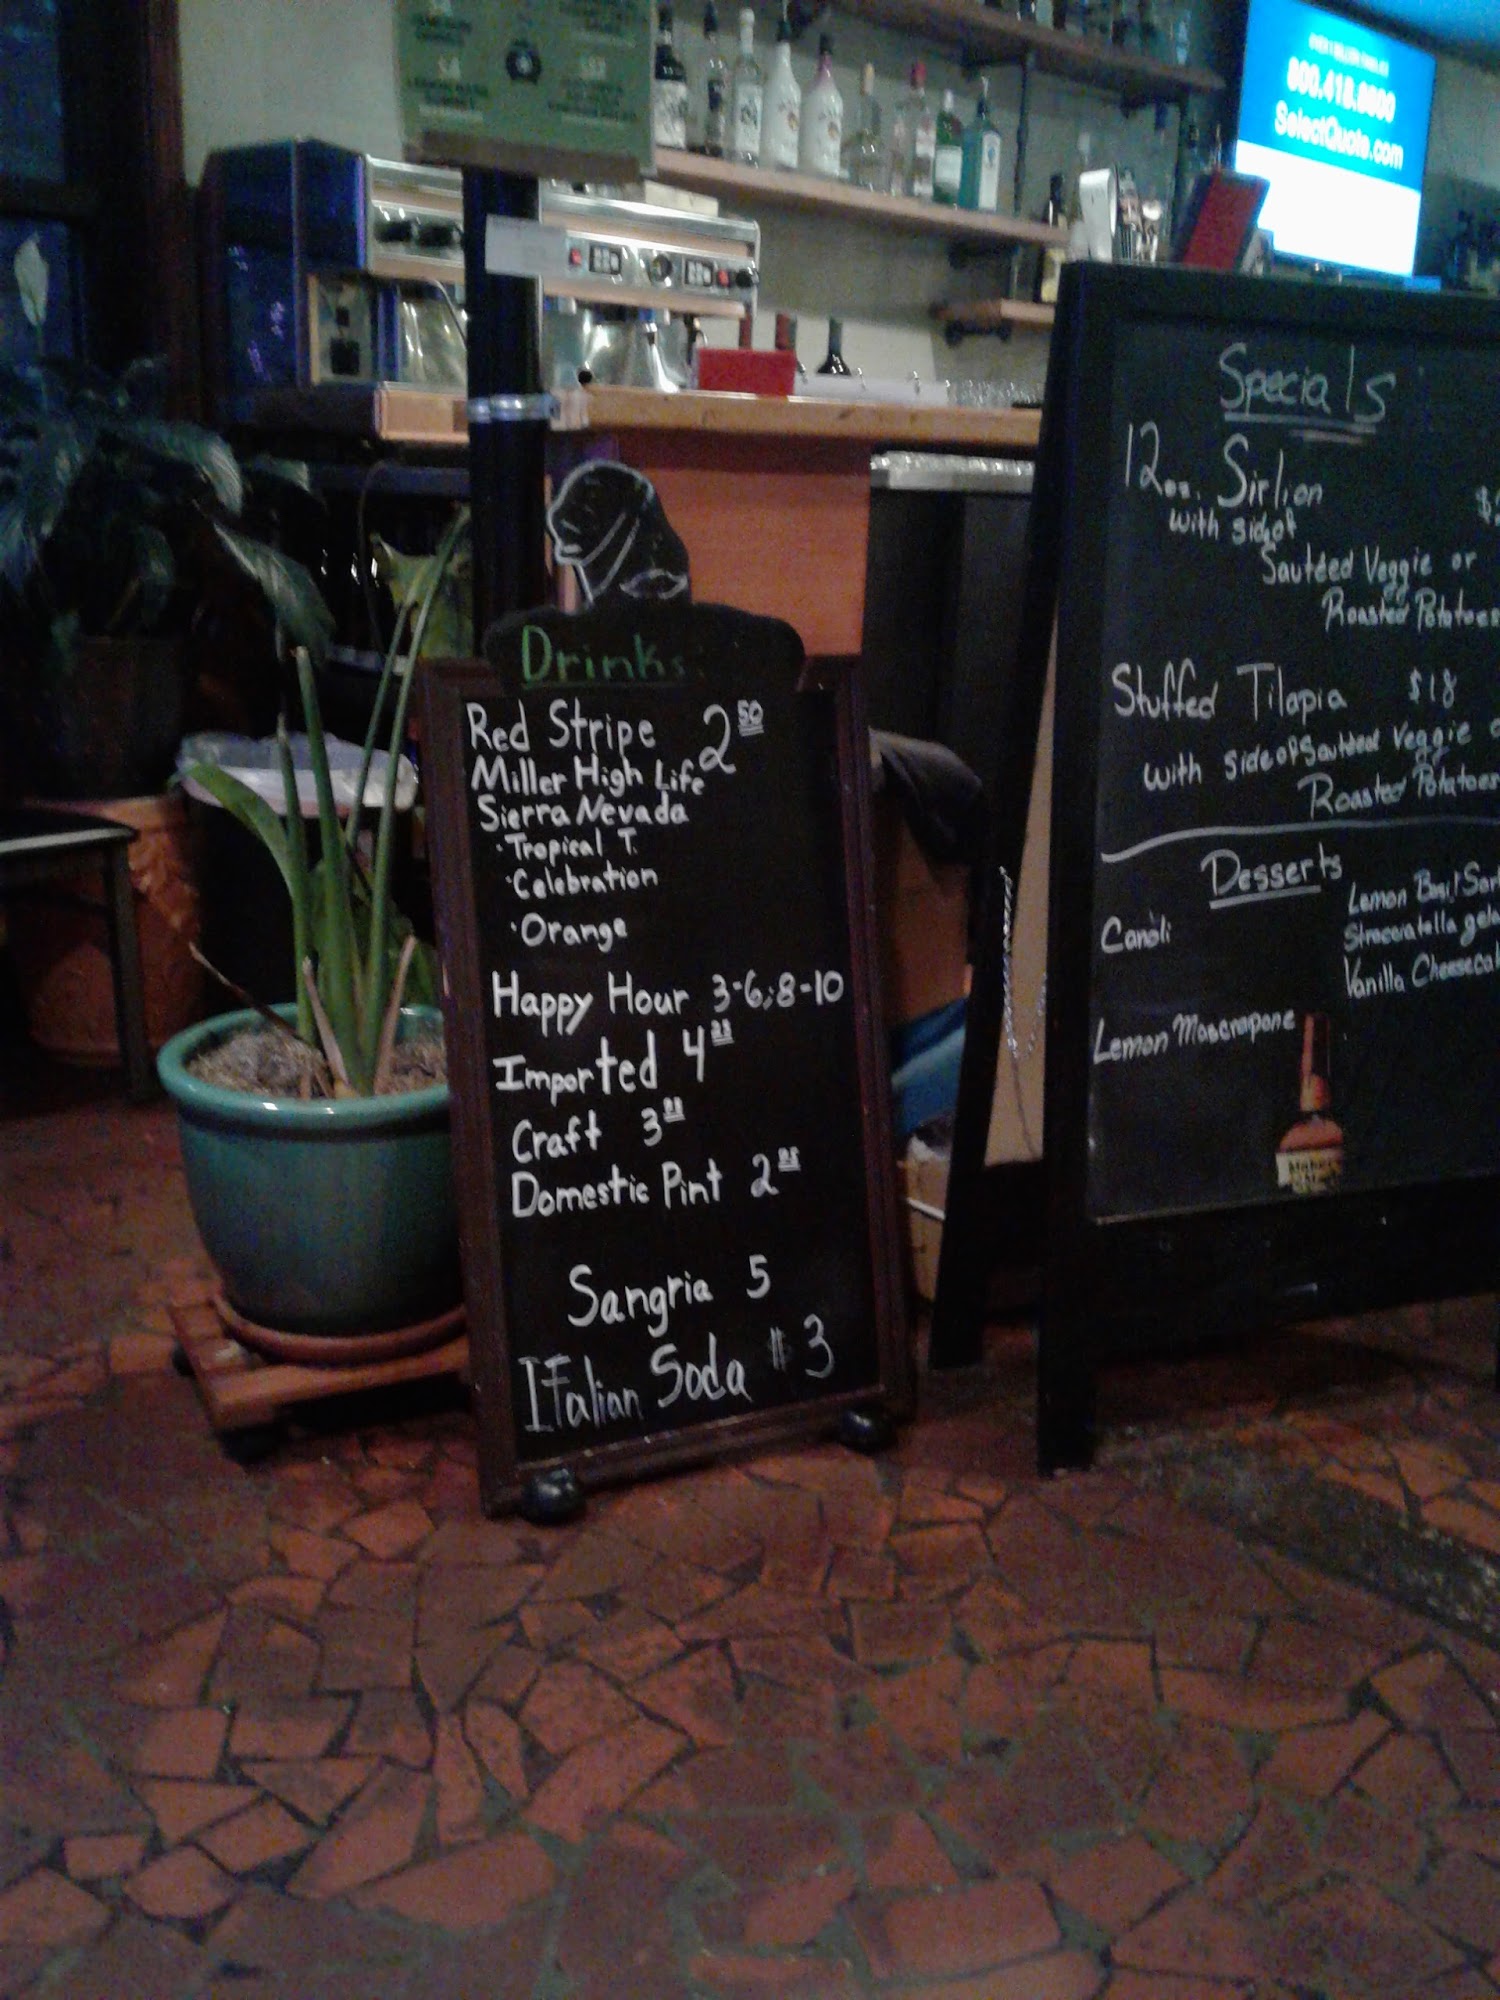 800.418.
SelectQuote.com
Drinks
Red Stripe 2 50
Miller High Life
Sierra Nevada
·Tropical T.
·Celebration
·Orange
Happy Hour 3-6;8-10
Imported 4
Craft 3
Domestic Pint 2
Sangria 5
ITalian Soda $3
Specials
12oz. Sirlion
with side of
Sautéed Veggie or
Roasted Potatoes
Stuffed Tilapia $18
with side of Sautéed Veggie
Roasted Potatoes
Desserts
Canoli
Lemon Basil
Stracciatella
Vanilla
Lemon Mascrapone